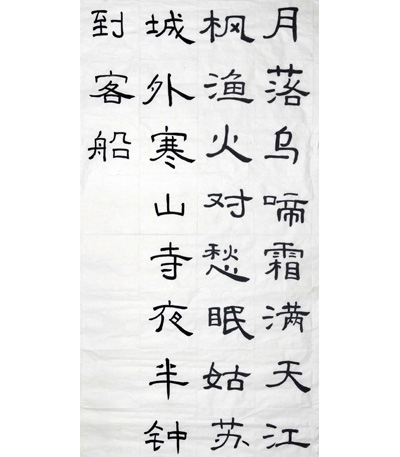 月落乌啼霜满天江
枫渔火对愁眠姑苏
城外寒山寺夜半钟
到客船